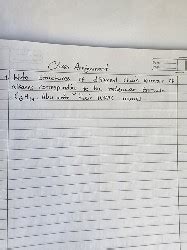 Class Assignment
1. Write structures of different chain isomers of
alkanes corresponding to the molecular formula
C₆H₁₄. Also write their IUPAC names